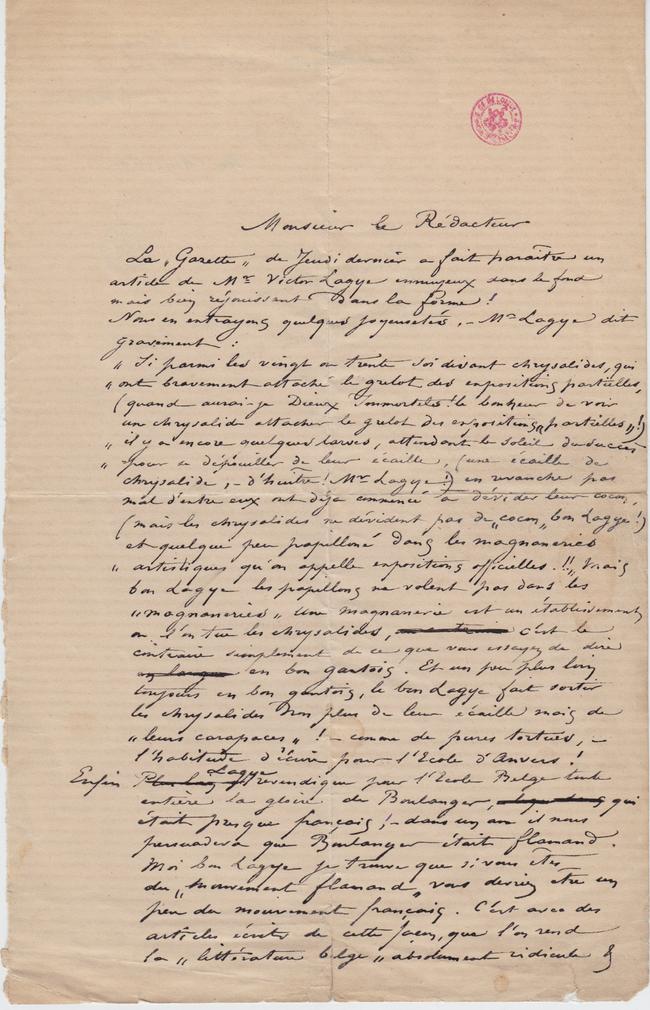 Monsieur le Rédacteur
La „Gazette„ de Jeudi dernier a fait paraître un
article de Mr Victor Lagye ennuyeux dans le fond
mais bien réjouissant dans la forme !
Nous en extrayons quelques joyeusetés. – Mr Lagye dit
gravement :
„ Si parmi les vingt ou trente soi disant chrysalides, qui
„ ont bravement attaché le grelot des expositions partielles,
(quand aurai-je Dieux Immortels ! le bonheur de voir
un chrysalide attacher le grelot des expositions partielles„ !)
„ il y a encore quelques larves, attendant le soleil du succès
„ pour se dépouiller de leur écaille, (une écaille de
chrysalide, – d'huître ! Mr Lagye !) en revanche pas
mal d'entre eux ont déja commencé à dévider leur cocon,
(mais les chrysalides ne dévident pas de „cocon„ bon Lagye !)
et quelque peu papillonné dans les magnaneries
„ artistiques qu'on appelle expositions officielles. !!„ Mais
bon Lagye les papillons ne volent pas dans les
„magnaneries„ Une magnanerie est un établissement
ou l'on tue les chrysalides, c'est le
contraire simplement de ce que vous essayez de dire
en bon gantois. Et un peu plus loin
toujours en bon gantois, le bon Lagye fait sortir
les chrysalides non plus de leur écaille mais de
„leurs carapaces„ ! – comme de pures tortues, –
l'habitude d'écrire pour l'Ecole d'Anvers !
Enfin Lagye revendique pour l'Ecole Belge toute
entière la gloire de Boulanger, qui
était presque français ; – dans un an il nous
persuadera que Boulanger était flamand.
Moi bon Lagye je trouve que si vous êtes
du „mouvement flamand„ vous devriez etre un
peu du mouvement français. C'est avec des
articles écrits de cette façon, que l'on rend
la „littérature belge„ absolument ridicule &